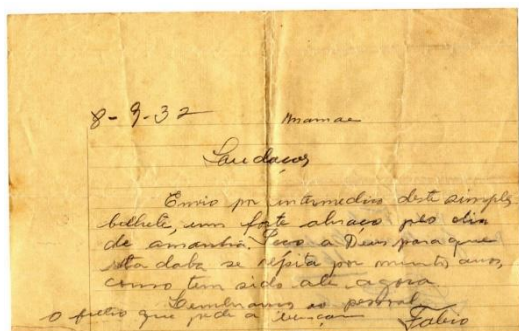 8-9-32 Mamãe
Saudações
Envio por intermedio deste simples
bilhete, um forte abraço pelo dia
de amanhã. Peço a Deus para que
esta data se repita por muitos anos,
como tem sido até agora
Lembranças ao pessoal
o filho que pede a benção Fabio